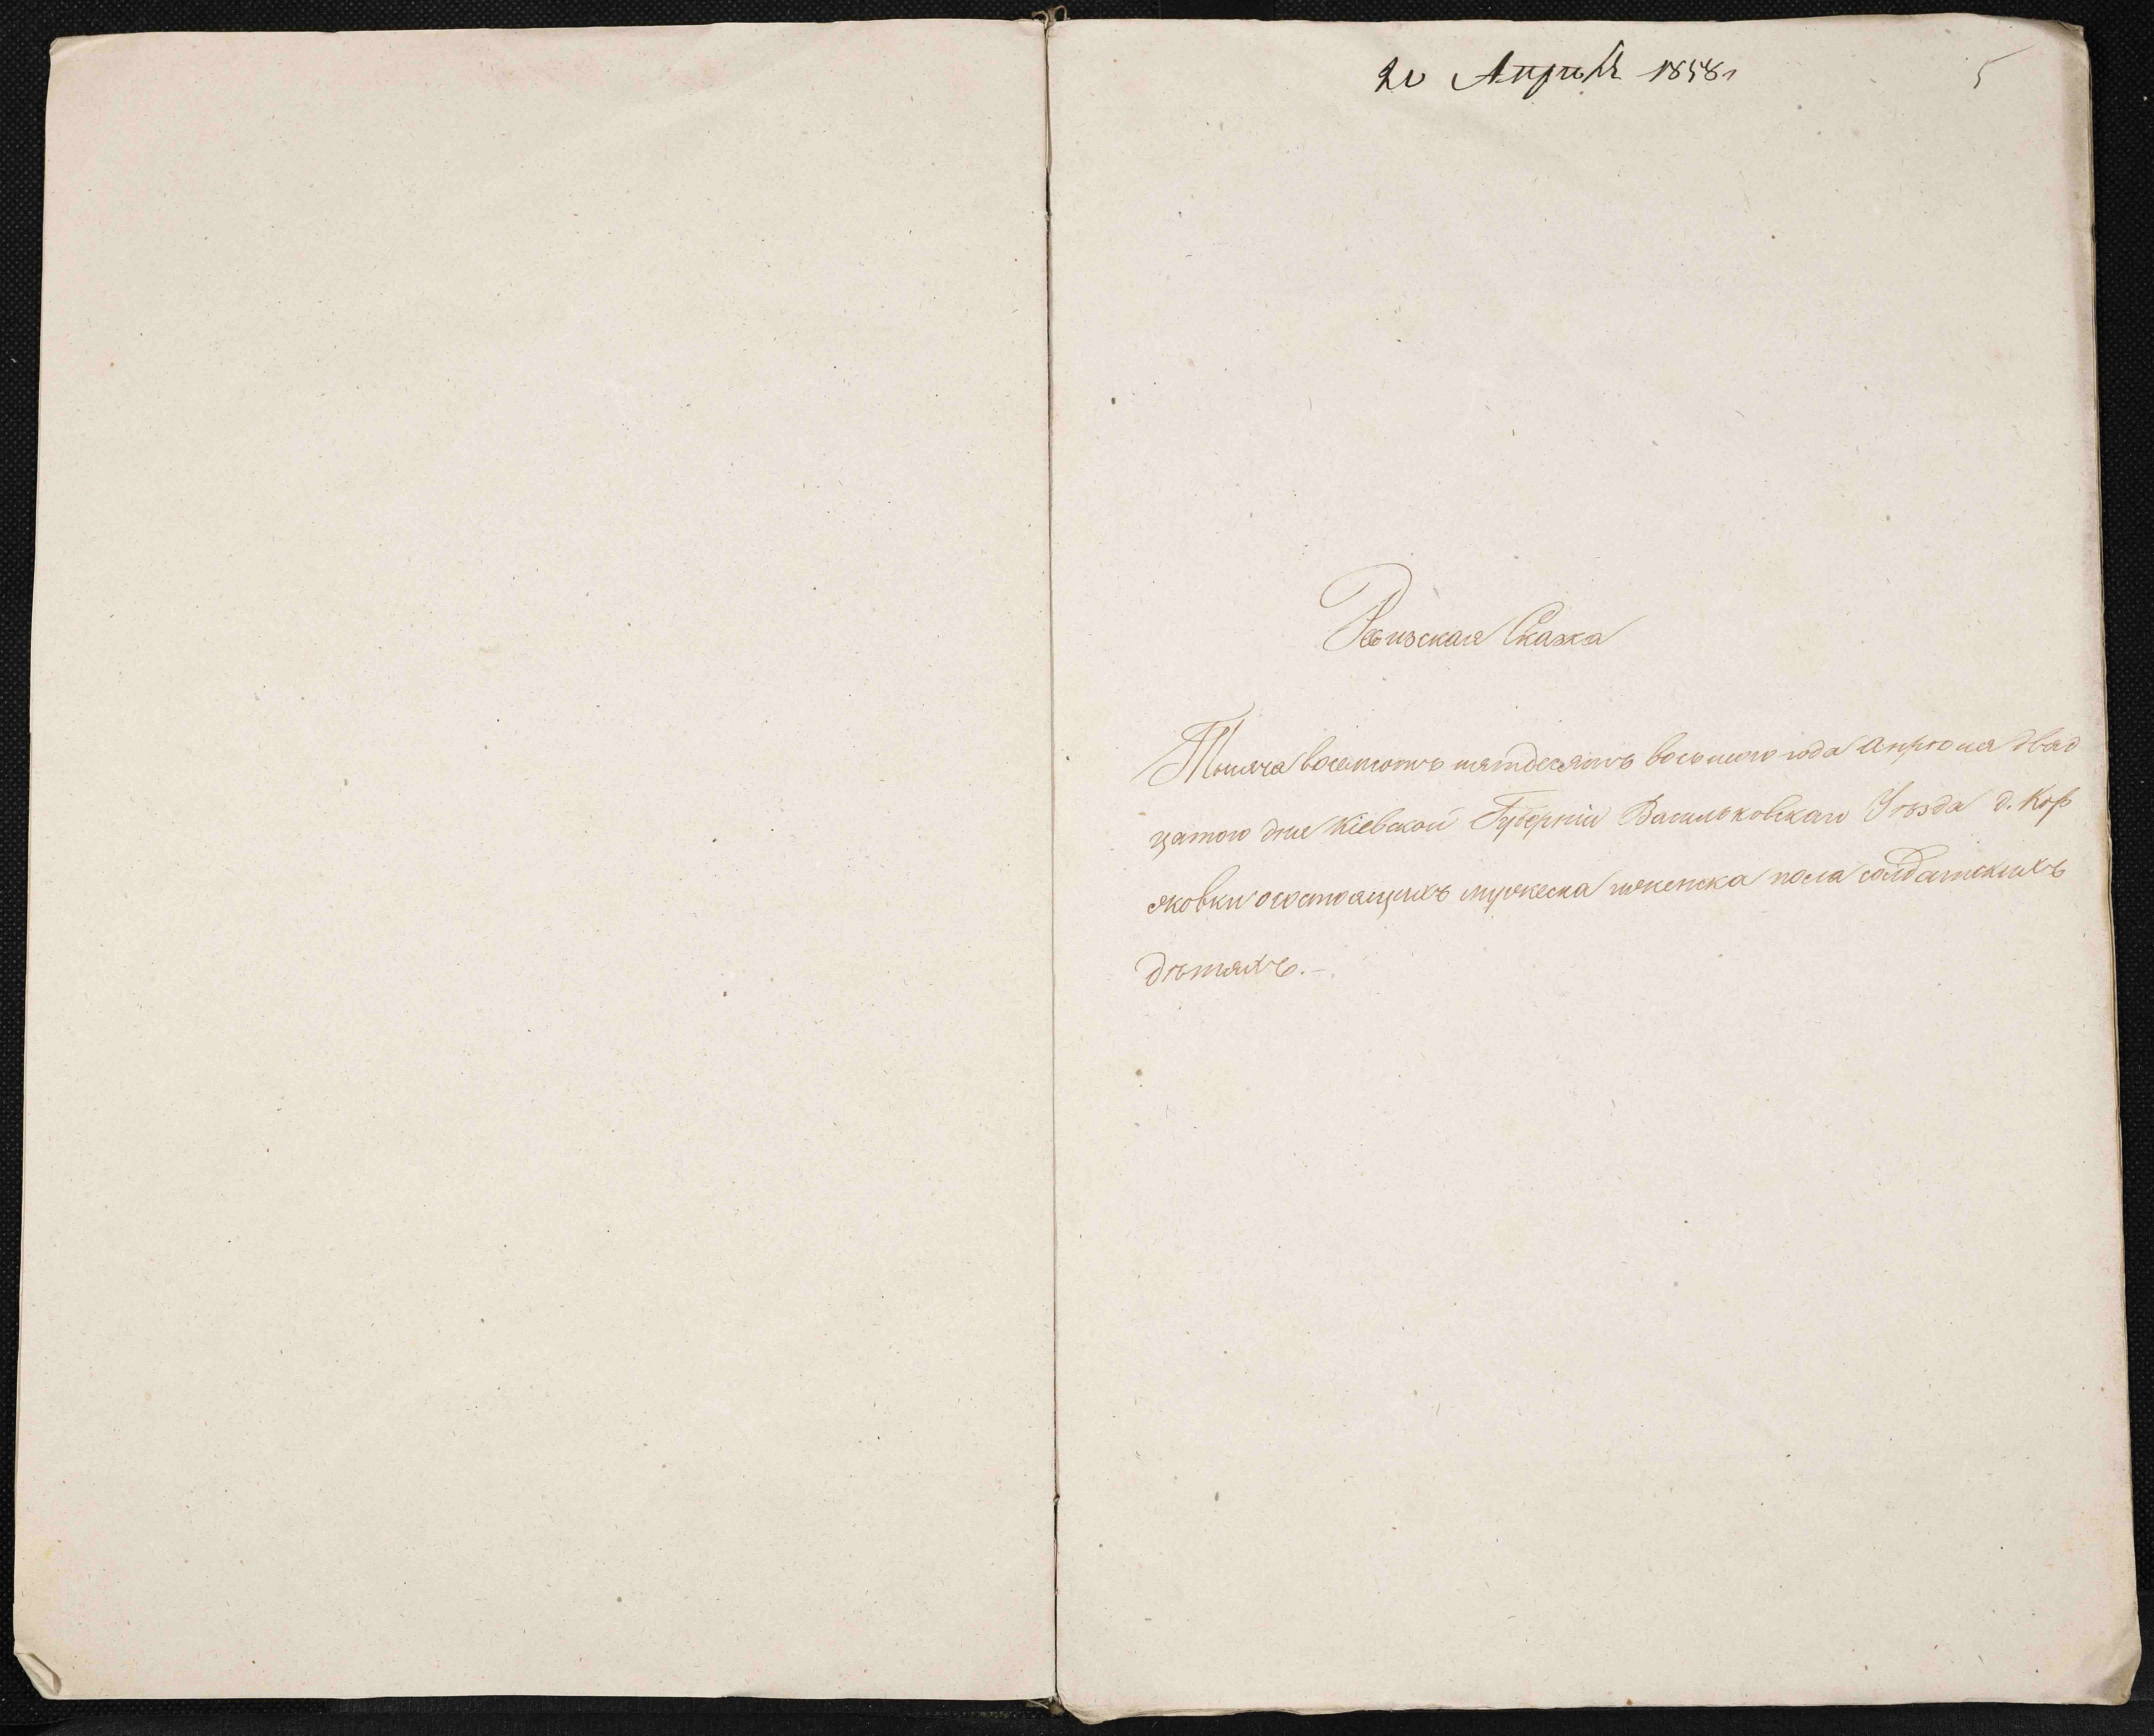 20 Апрѣля 1858 г
5
Ревизская Сказка
Тысяча восемсотъ пятдесятъ восьмого года апрѣля двад
цатого дня Кіевской Губерніи Васильковскаго Уѣзда д. Кор
яковки о состоящихъ мужеска женска пола солдатскихъ
дѣтяхъ.-